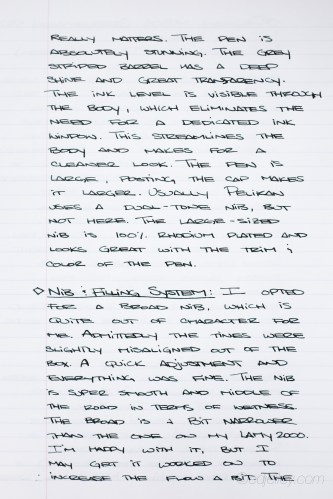 REALLY MATTERS. THE PEN IS
ABSOLUTELY STUNNING. THE GREY
STRIPED BARREL HAS A DEEP
SHINE AND GREAT TRANSPARENCY.
THE INK LEVEL IS VISIBLE THROUGH
THE BODY, WHICH ELIMINATES THE
NEED FOR A DEDICATED INK
WINDOW. THIS STREAMLINES THE
BODY AND MAKES FOR A
CLEANER LOOK. THE PEN IS
LARGE, POSTING THE CAP MAKES
IT LARGER. USUALLY PELIKAN
USES A DUAL-TONE NIB, BUT
NOT HERE. THE LARGE-SIZED
NIB IS 100% RHODIUM PLATED AND
LOOKS GREAT WITH THE TRIM &
COLOR OF THE PEN.
◇ NIB & FILLING SYSTEM: I OPTED
FOR A BROAD NIB, WHICH IS
QUITE OUT OF CHARACTER FOR
ME. ADMITTEDLY THE TINES WERE
SLIGHTLY MISALIGNED OUT OF THE
BOX. A QUICK ADJUSTMENT AND
EVERYTHING WAS FINE. THE NIB
IS SUPER SMOOTH AND MIDDLE OF
THE ROAD IN TERMS OF WETNESS.
THE BROAD IS A BIT NARROWER
THAN THE ONE ON MY LAMY 2000.
I'M HAPPY WITH IT, BUT I
MAY GET IT WORKED ON TO
INCREASE THE FLOW A BIT. THE